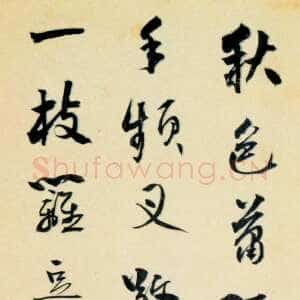 秋色蕭
手頻叉
一枝羅豆
Shufawang.CN